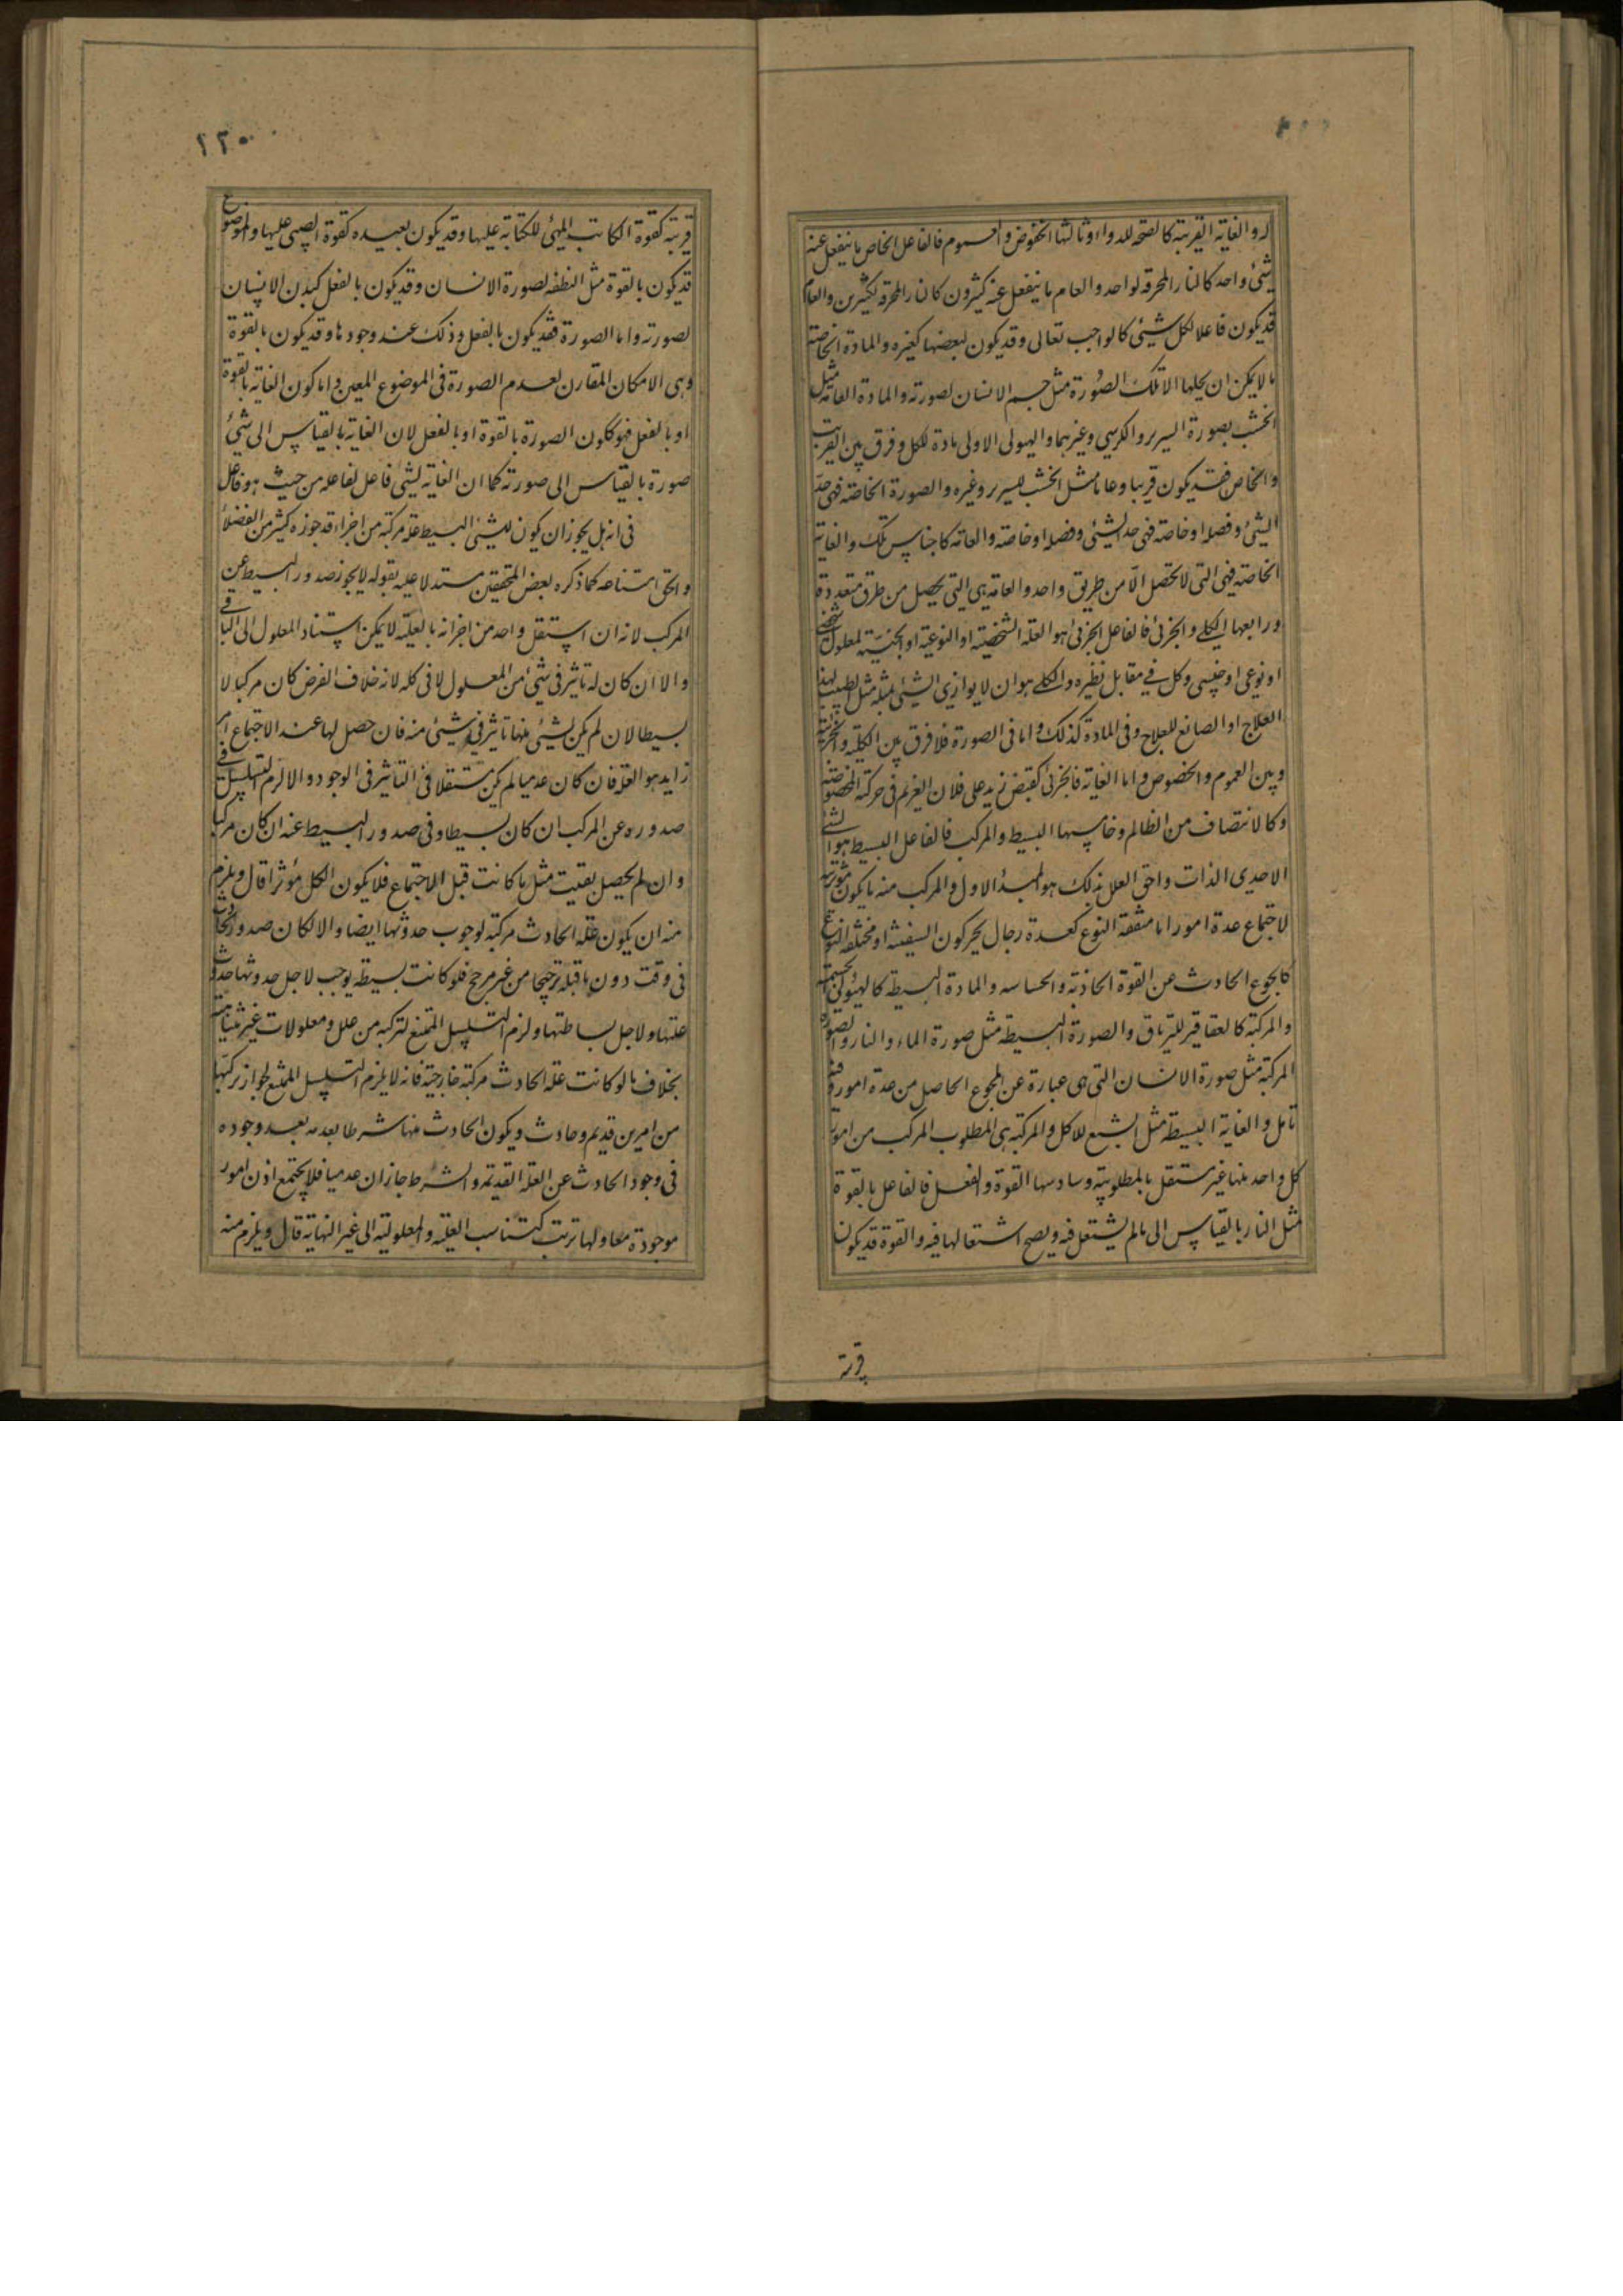 له والغاية القريبة كالصحة للدواء وثالثها الخصوص والعموم فالفاعل الخاص ما ينفعل عنه
شيئ واحد كالنار المحرقة لواحد والعام ما ينفعل عنه كثيرون كالنار المحرقة لكثيرين والعام
قد يكون فاعلا لكل شيئ كالواجب تعالى وقد يكون لبعضها كغيره والمادة الخاصة
ما لا يمكن ان يحلها الا تلك الصورة مثل جسم الانسان لصورته والمادة العامة مثل
الخشب لصورة السرير والكرسي وغيرهما والهيولى الاولى مادة للكل وفرق بين القريب
والخاص فقد يكون قريبا وعاما مثل الخشب للسرير وغيره والصورة الخاصة فهى حد
الشيئ وفصله او خاصته فهى حد الشيئ وفصله او خاصته والعامة كاجناس تلك والغاية
الخاصة فهى التى لا تحصل الا من طريق واحد والعامة هى التى تحصل من طرق متعددة
ورابعها الكلى والجزئى فالفاعل الجزئى هو العلة الشخصية او النوعية او الجنسية لمعلول شخصى
او نوعى او جنسى وكل فى مقابل نظيره والكلى هو ان لا يوازى الشيئ بمثله مثل الطبيب لهذا
العلاج او الصانع للعلاج وفى المادة كذلك واما فى الصورة فلا فرق بين الكلية والجزئية
وبين العموم والخصوص واما الغاية فالجزئى كقبض زيد على فلان الغريم فى حركته المخصوصة
وكالانتصاف من الظالم وخامسها البسيط والمركب فالفاعل البسيط هو الشئ
الاحدى الذات واحق العلل بذلك هو المبدأ الاول والمركب منه ما يكون مؤثريته
لاجتماع عدة امور اما متفقة النوع كعدة رجال يحركون السفينة او مختلفة النوع
كالجوع الحادث عن القوة الجاذبة والحساسه والمادة البسيطة كالهيولى للجسمية
والمركبة كالعقاقير للترياق والصورة البسيطة مثل صورة الماء والنار والصورة
المركبة مثل صورة الانسان التى هى عبارة عن المجموع الحاصل من عدة امور وفيه
تأمل والغاية البسيطة مثل الشبع للاكل والمركبة هى المطلوب المركب من امور
كل واحد منها غير مستقل بالمطلوبية وسادسها القوة والفعل فالفاعل بالقوة
مثل النار بالقياس الى ما لم يشتعل فيه ويصح اشتعالها فيه والقوة قد يكون
قريبة
١٢٥٠
قريبة كقوة الكاتب المهيئ للكتابة عليها وقد يكون بعيده كقوة الصبى عليها والموضوع
قد يكون بالقوة مثل النطفة لصورة الانسان وقد يكون بالفعل كبدن الانسان
لصورته واما الصورة فقد يكون بالفعل وذلك عند وجودها وقد يكون بالقوة
وهى الامكان المقارن لعدم الصورة فى الموضوع المعين واما كون الغاية بالقوة
او بالفعل فهو ككون الصورة بالقوة او بالفعل لان الغاية بالقياس الى شيئ
صورة بالقياس الى صورته كما ان الغاية لشئ فاعل لفاعله من حيث هو فاعل
فى انه هل يجوز ان يكون للشيئ البسيط علة مركبة من اجزاء قد جوزه كثير من الفضلاء
والحق امتناعه كما ذكره بعض المحققين مستدلا عليه بقوله لا يجوز صدور البسيط عن
المركب لانه ان استقل واحد من اجزائه بالعلية لا يمكن استناد المعلول الى الباقى
والا ان كان له تاثير فى شيئ من المعلول لا فى كله لانه خلاف الفرض كان مركبا لا
بسيطا لان لم يكن لشيئ منها تاثير فى شيئ منه فان حصل لها عند الاجتماع امر
زايد هو العلة فان كان عدميا لم يكن مستقلا فى التاثير فى الوجود والا لزم التسلسل فى
صدوره عن المركب ان كان بسيطا وفى صدور البسيط عنه ان كان مركبا
وان لم يحصل بقيت مثل ما كانت قبل الاجتماع فلا يكون الكل مؤثرا قال ويلزم
منه ان يكون علة الحادث مركبة لوجوب حدوثها ايضا والا لكان صدور الحادث
فى وقت دون ما قبله ترجيحا من غير مرجح فلو كانت بسيطة يوجب لاجل حدوثها حدوث
علتها ولاجل بساطتها ولزم التسلسل الممتنع لتركبه من علل ومعلولات غير متناهية
بخلاف ما لو كانت علة الحادث مركبة خارجية فانه لا يلزم التسلسل الممتنع لجواز تركبها
من امرين قديم وحادث ويكون الحادث منها شرطا بعدمه بعد وجوده
فى وجود الحادث عن العلة القديمة والشرط جاز ان عدميا فلا يجتمع اذن امور
موجودة معا ولها ترتب كتناسب العلية والمعلولية الى غير النهاية قال ويلزم منه